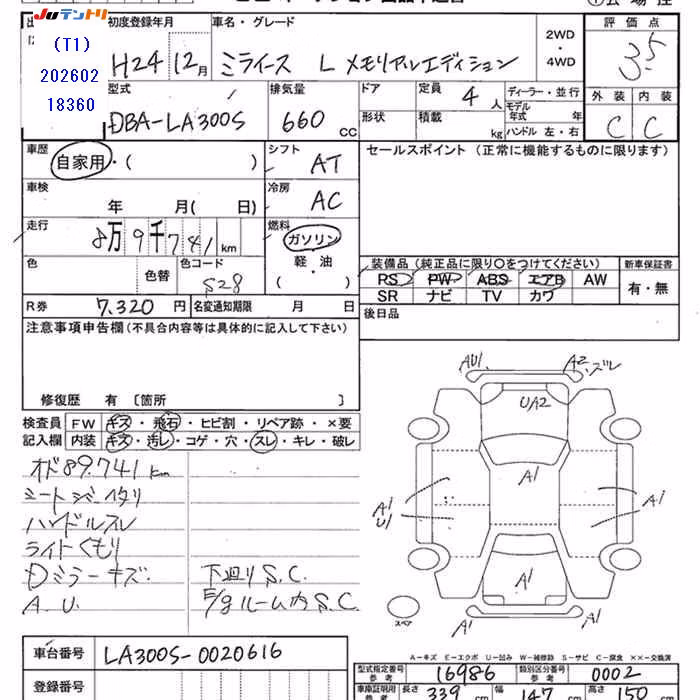 JUテントリ
初度登録年月
車名・グレード
評価点
(T1)
202602
18360
H24 12月
ミライース L メモリアルエディション
2WD
・
4WD
3.5
型式
DBA-LA300S
排気量
660 cc
ドア
形状
定員
4人
積載
kg
ディーラー・並行
モデル年式 年
ハンドル 左・右
外装 内装
C C
車歴
自家用・( )
シフト
AT
セールスポイント (正常に機能するものに限ります)
車検
年 月( 日)
冷房
AC
走行
8万9千741km
燃料
ガソリン
軽・油
( )
色
色替
色コード
S28
装備品 (純正品に限り〇をつけてください)
新車保証書
RS PW ABS エアB AW
SR ナビ TV カワ
有・無
R券 7,320円
名変通知期限 月 日
後日品
注意事項申告欄(不具合内容等は具体的に記入して下さい)
修復歴 有〔箇所 〕
検査員
記入欄
FW キズ・飛石・ヒビ割・リペア跡・×要
内装 キズ・汚レ・コゲ・穴・スレ・キレ・破レ
オド89.741km
シートシミ・ヘタリ
ハンドルスレ
ライトくもり
Dミラーキズ.
下廻りS.C.
A.U.
E/gルーム内S.C.
AU1
A2.ズレ
UA2
A1
A1
U1
A1
A1
A1
A1
スペア
A-キズ E-エクボ U-凹み W-補修跡 S-サビ C-腐食 ××-交換済
車台番号
LA300S-0020616
登録番号
型式指定番号
参考
16986
類別区分番号
参考
0002
車庫証明用
参考
長さ 339 cm
幅 147 cm
高さ 150 cm